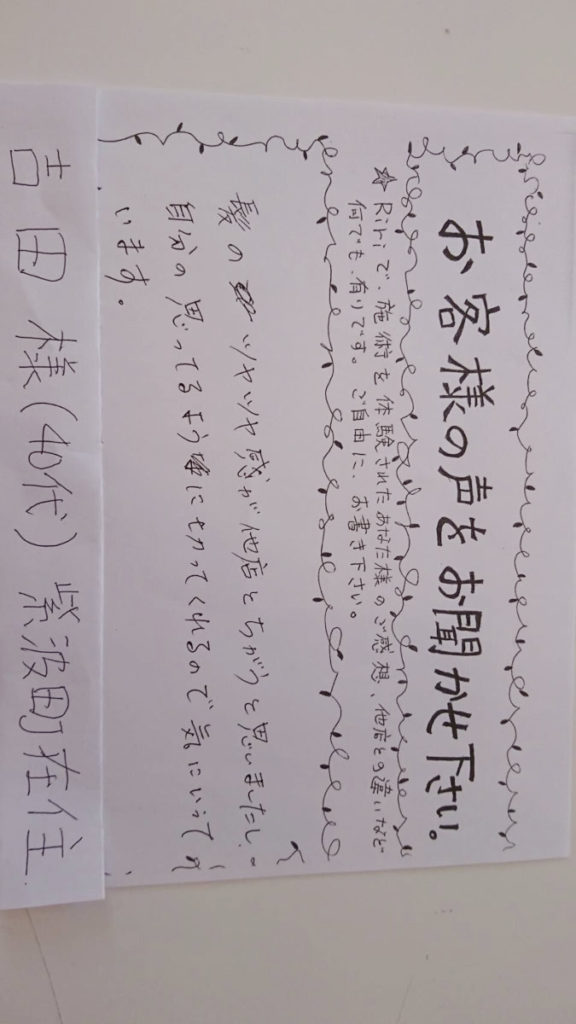 お客様の声をお聞かせ下さい。
☆ Ririで、施術を体験されたあなた様のご感想、他店との違いなど
何でも、有りです。ご自由に、お書き下さい。
髪のツヤツヤ感が他店とちがうと思いましたし。
自分の思ってるように切ってくれるので気にいって
います。
吉田様(40代)紫波町在住